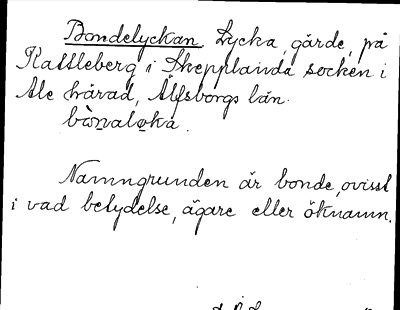 Bondelyckan Lycka, gärde, på
Kattleberg i Skepplanda socken i
Ale härad, Älfsborgs län.
bònalɵka.
Namngrunden är bonde, ovisst
i vad betydelse, ägare eller öknamn.